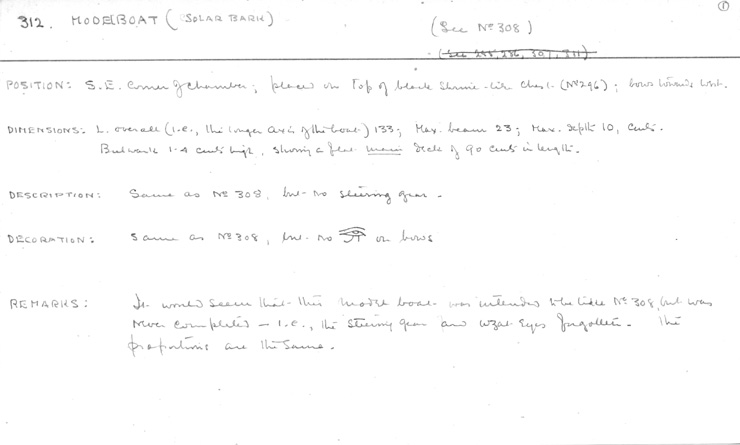 ①
312. MODEL BOAT (SOLAR BARK)
(See Nº 308)
(See 285, 286, 307, 311)
POSITION: S.E. corner of chamber; placed on top of black shrine-like chest (Nº 296); bows towards West.
DIMENSIONS: L. overall (i.e., the longer axis of the boat) 133; Max. beam 23; Max. depth 10, cents.
Bulwark 1.4 cents high, showing a flat main deck of 90 cents in length.
DESCRIPTION: Same as Nº 308, but no steering gear.
DECORATION: Same as Nº 308, but no 𓂀 on bows
REMARKS: It would seem that this model boat was intended to be like Nº 308, but was
never completed – i.e., the steering gear and uzat-eyes forgotten. The
proportions are the same.